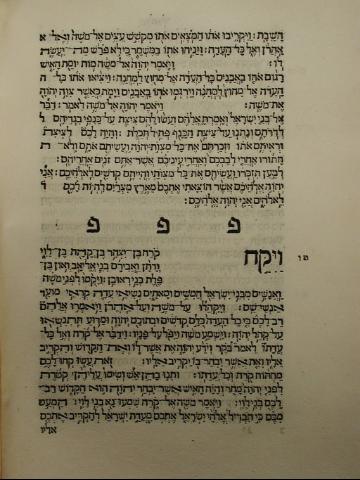 השבת: ויקריבו אתו המצאים אתו מקשש עצים אל משה ואל א
אהרן ואל כל העדה: ויניחו אתו במשמר כי לא פרש מה יעשה
לו: ויאמר יהוה אל משה מות יומת האיש
רגום אתו באבנים כל העדה אל מחוץ למחנה: ויציאו אתו כל ה
העדה אל מחוץ למחנה וירגמו אתו באבנים וימת כאשר צוה יהוה
את משה: ויאמר יהוה אל משה לאמר: דבר
אל בני ישראל ואמרת אלהם ועשו להם ציצת על כנפי בגדיהם ל
לדרתם ונתנו על ציצת הכנף פתיל תכלת: והיה לכם לציצת
וראיתם אתו וזכרתם את כל מצות יהוה ועשיתם אתם ולא ת
תתורו אחרי לבבכם ואחרי עיניכם אשר אתם זנים אחריהם:
למען תזכרו ועשיתם את כל מצותי והייתם קדשים לאלהיכם: אני
יהוה אלהיכם אשר הוצאתי אתכם מארץ מצרים להיות לכם
לאלהים אני יהוה אלהיכם:
פ פ פ
ויקח קרח בן יצהר בן קהת בן לוי
ודתן ואבירם בני אליאב ואון בן
פלת בני ראובן: ויקמו לפני משה
ואנשים מבני ישראל חמשים ומאתים נשיאי עדה קראי מועד
אנשי שם: ויקהלו על משה ועל אהרן ויאמרו אלהם
רב לכם כי כל העדה כלם קדשים ובתוכם יהוה ומדוע תתנשאו
על קהל יהוה: וישמע משה ויפל על פניו: וידבר אל קרח ואל כל
עדתו לאמר בקר וידע יהוה את אשר לו ואת הקדוש והקריב
אליו ואת אשר יבחר בו יקריב אליו: זאת עשו קחו לכם
מחתות קרח וכל עדתו: ותנו בהן אש ושימו עליהן קטרת
לפני יהוה מחר והיה האיש אשר יבחר יהוה הוא הקדוש רב
לכם בני לוי: ויאמר משה אל קרח שמעו נא בני לוי: המעט
מכם כי הבדיל אלהי ישראל אתכם מעדת ישראל להקריב אתכם
אליו